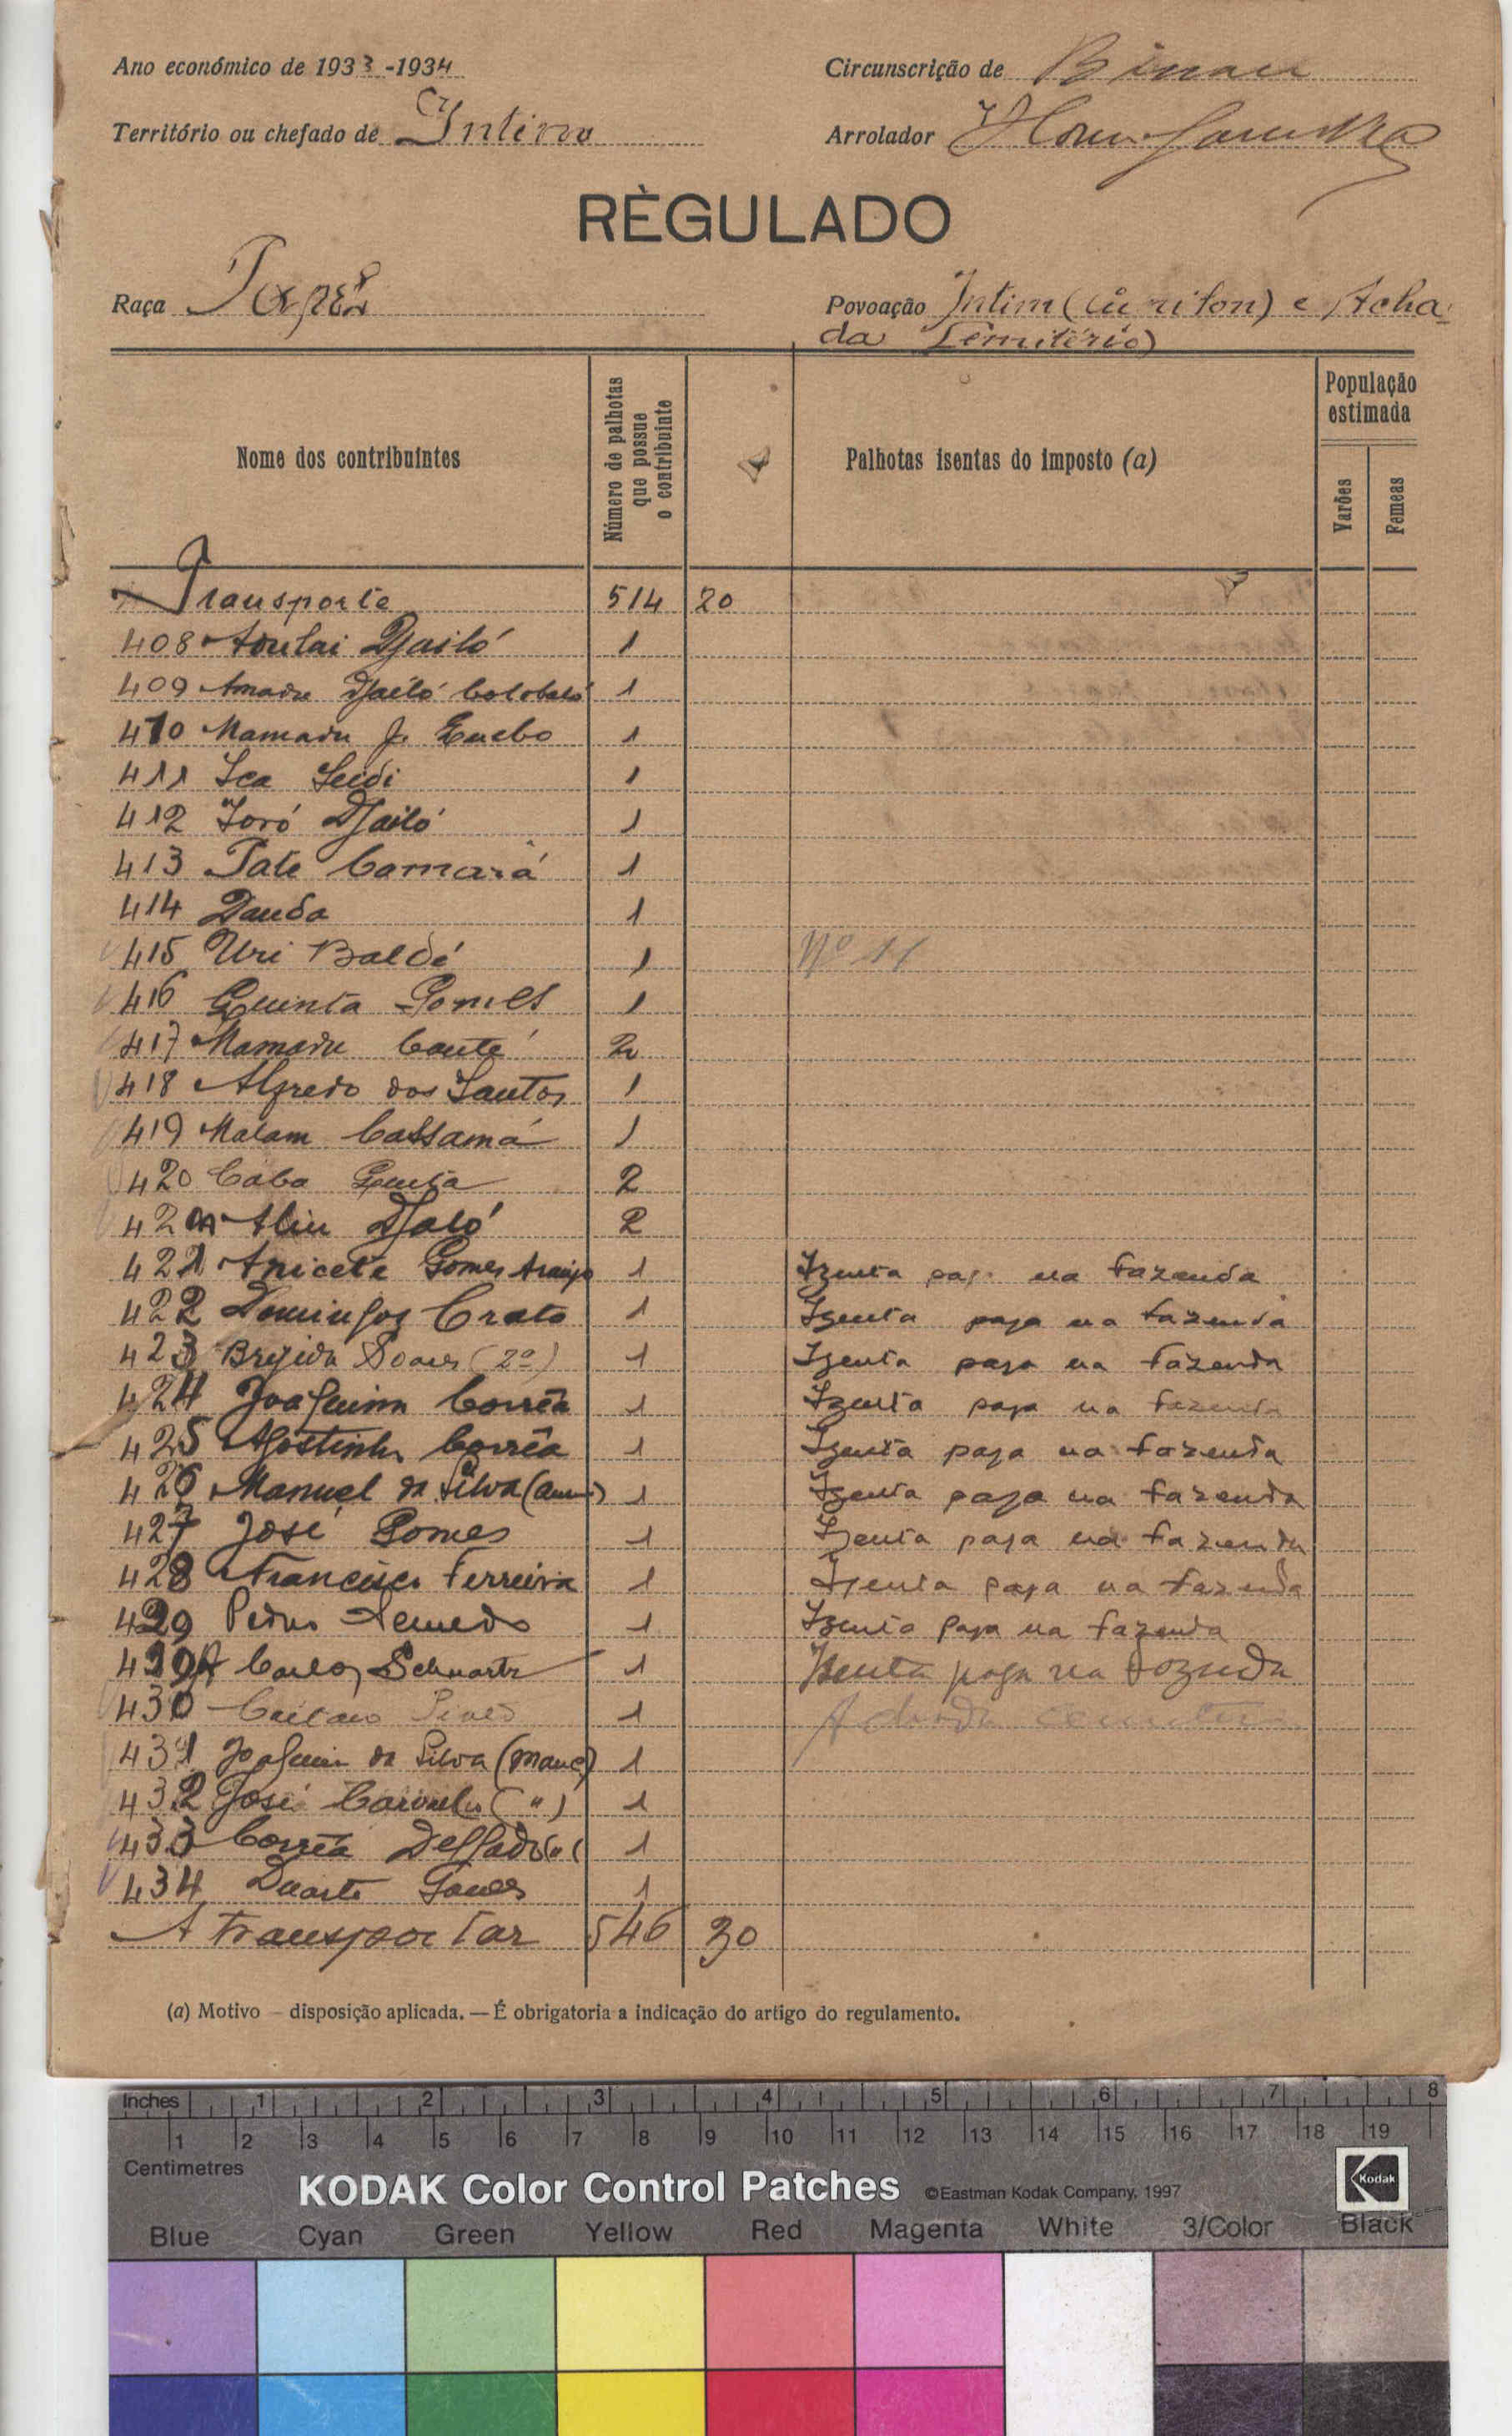 Ano económico de 1933-1934
Circunscrição de Bissau
Território ou chefado de Intim
Arrolador
RÈGULADO
Raça Papel
Povoação Intim (Cúriton) e Acha-
da Cemitério)
Nome dos contribuintes
Número de palhotas que possue o contribuinte
Palhotas isentas do imposto (a)
População estimada
Varões
Femeas
Transporte 514 20
408 Djailó 1
409 Amadu Djaló 1
410 Mamadu J. Embo 1
411 Ica Seidi 1
412 Ioró Djaló 1
413 Pate Camará 1
414 Dauda 1
415 Uri Baldé 1 Nº 11
416 Quinta Gomes 1
417 Mamadu Canté 2
418 Alfredo dos Santos 1
419 Malam Cassamá 1
420 Caba 2
420A Aliu Djaló 2
421 Anicete Gomes Araujo 1 Izenta pag na fazenda
422 Domingos Crato 1 Izenta paga na fazenda
423 Brígida Soares (2º) 1 Izenta paga na fazenda
424 Joaquim Corrêa 1 Izenta paga na fazenda
425 Agostinho Corrêa 1 Izenta paga na fazenda
426 Manuel da Silva 1 Izenta paga na fazenda
427 José Gomes 1 Izenta paga na fazenda
428 Francisco Ferreira 1 Izenta paga na fazenda
429 Pedro Semedo 1 Izenta paga na fazenda
429A Carlos Schwartz 1 Izenta paga na fazenda
430 Caetano Pires 1 Achada cemiterio
431 Joaquim da Silva (manc) 1
432 José Carvalho (") 1
433 Corrêa Delgado (") 1
434 Duarte Gomes 1
A transportar 546 20
(a) Motivo — disposição aplicada. — É obrigatoria a indicação do artigo do regulamento.
Inches 1 2 3 4 5 6 7 8
1 2 3 4 5 6 7 8 9 10 11 12 13 14 15 16 17 18 19
Centimetres
KODAK Color Control Patches ©Eastman Kodak Company, 1997 Kodak
Blue Cyan Green Yellow Red Magenta White 3/Color Black